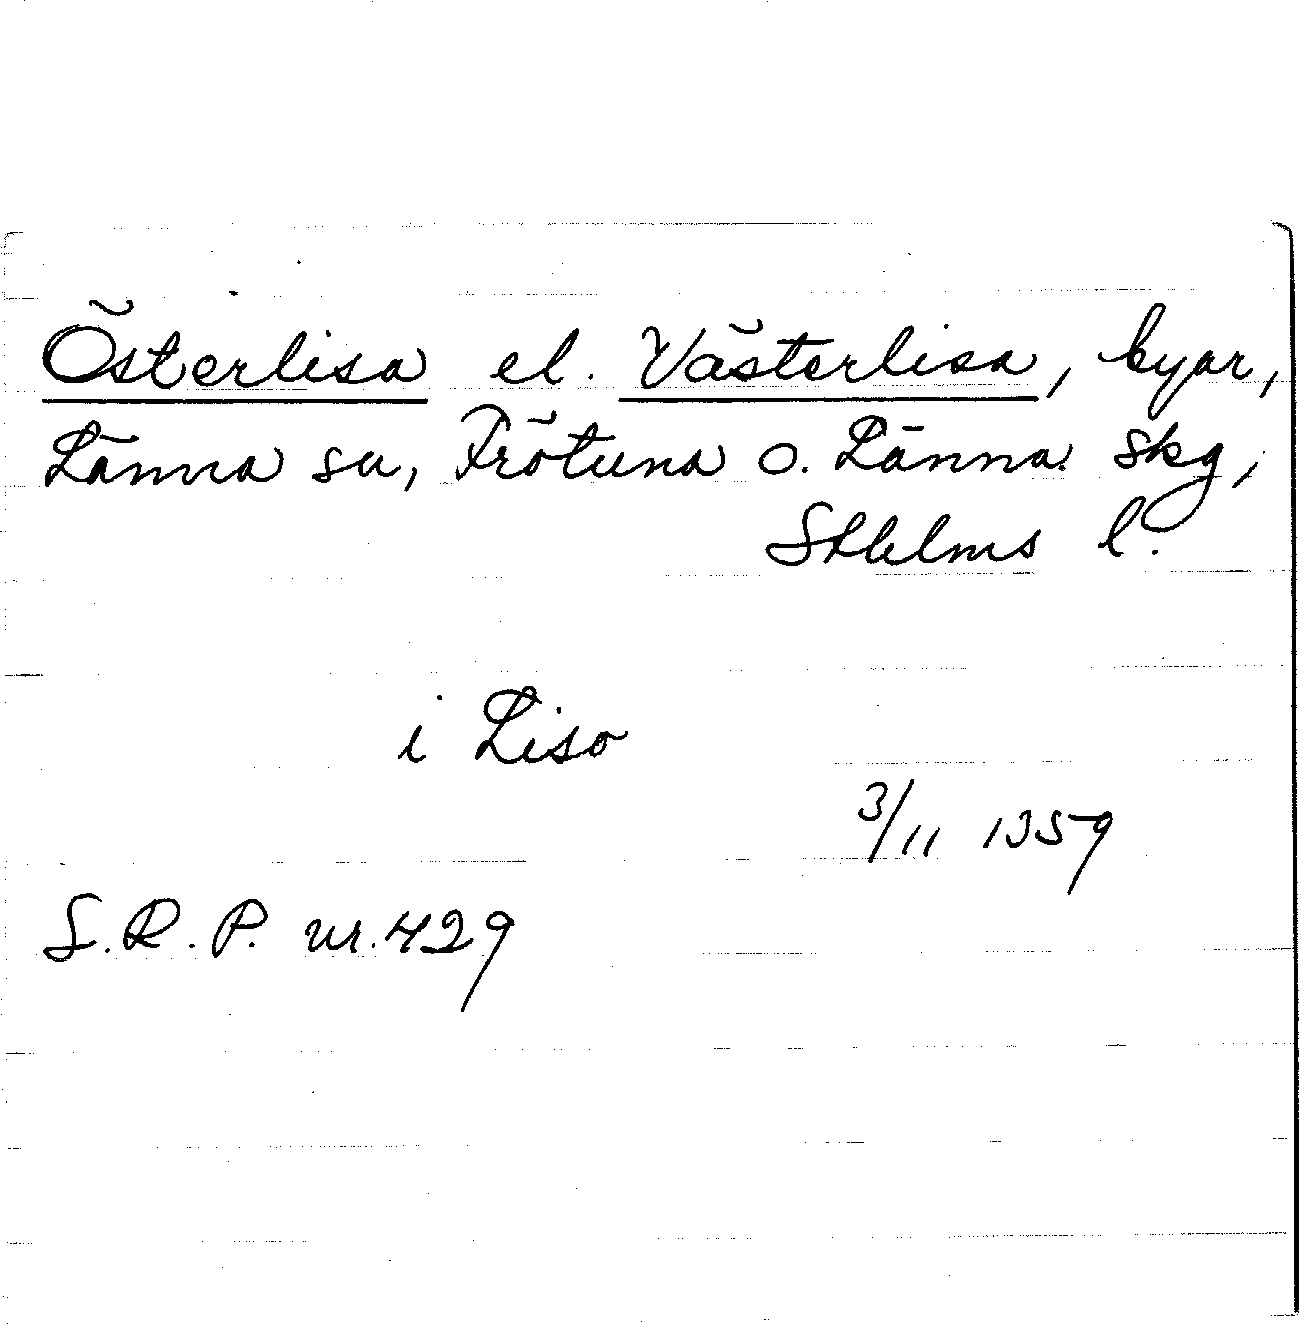 Österlisa el. Västerlisa, byar,
Länna sn, Frötuna o. Länna skg,
Sthlms l.
i Liso
3/11 1359
S.R.P. nr. 429